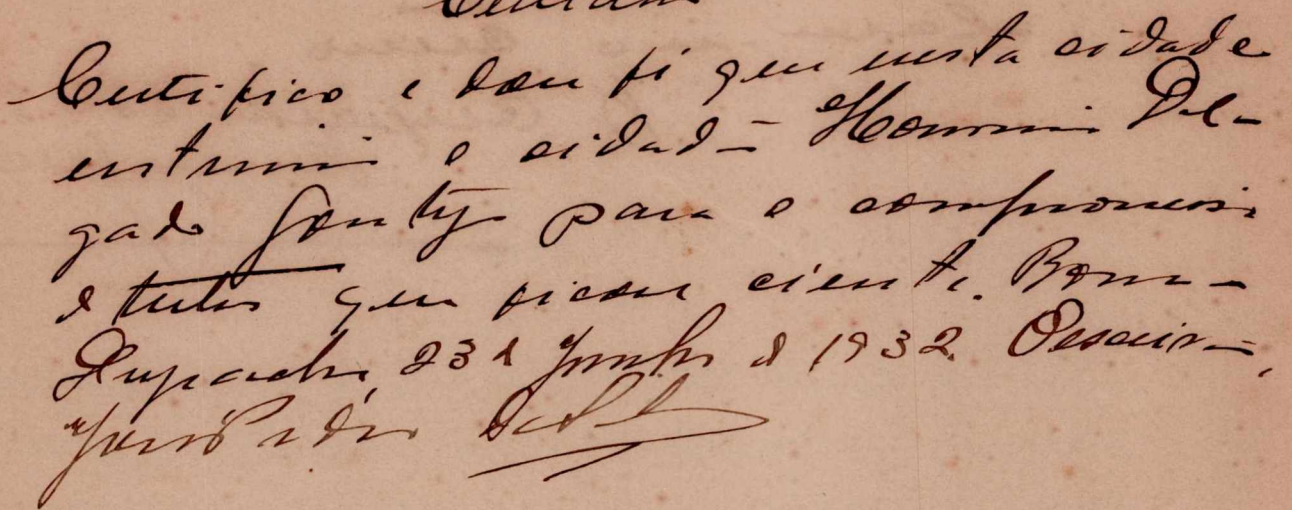 Certidão
Certifico e dou fé que nesta cidade
intimei o cidadão Honorio Del-
gado para o compromisso
de tutor que ficou ciente. Bom-
Despacho, 23 de Junho de 1932. O escrivão,
José Pedro